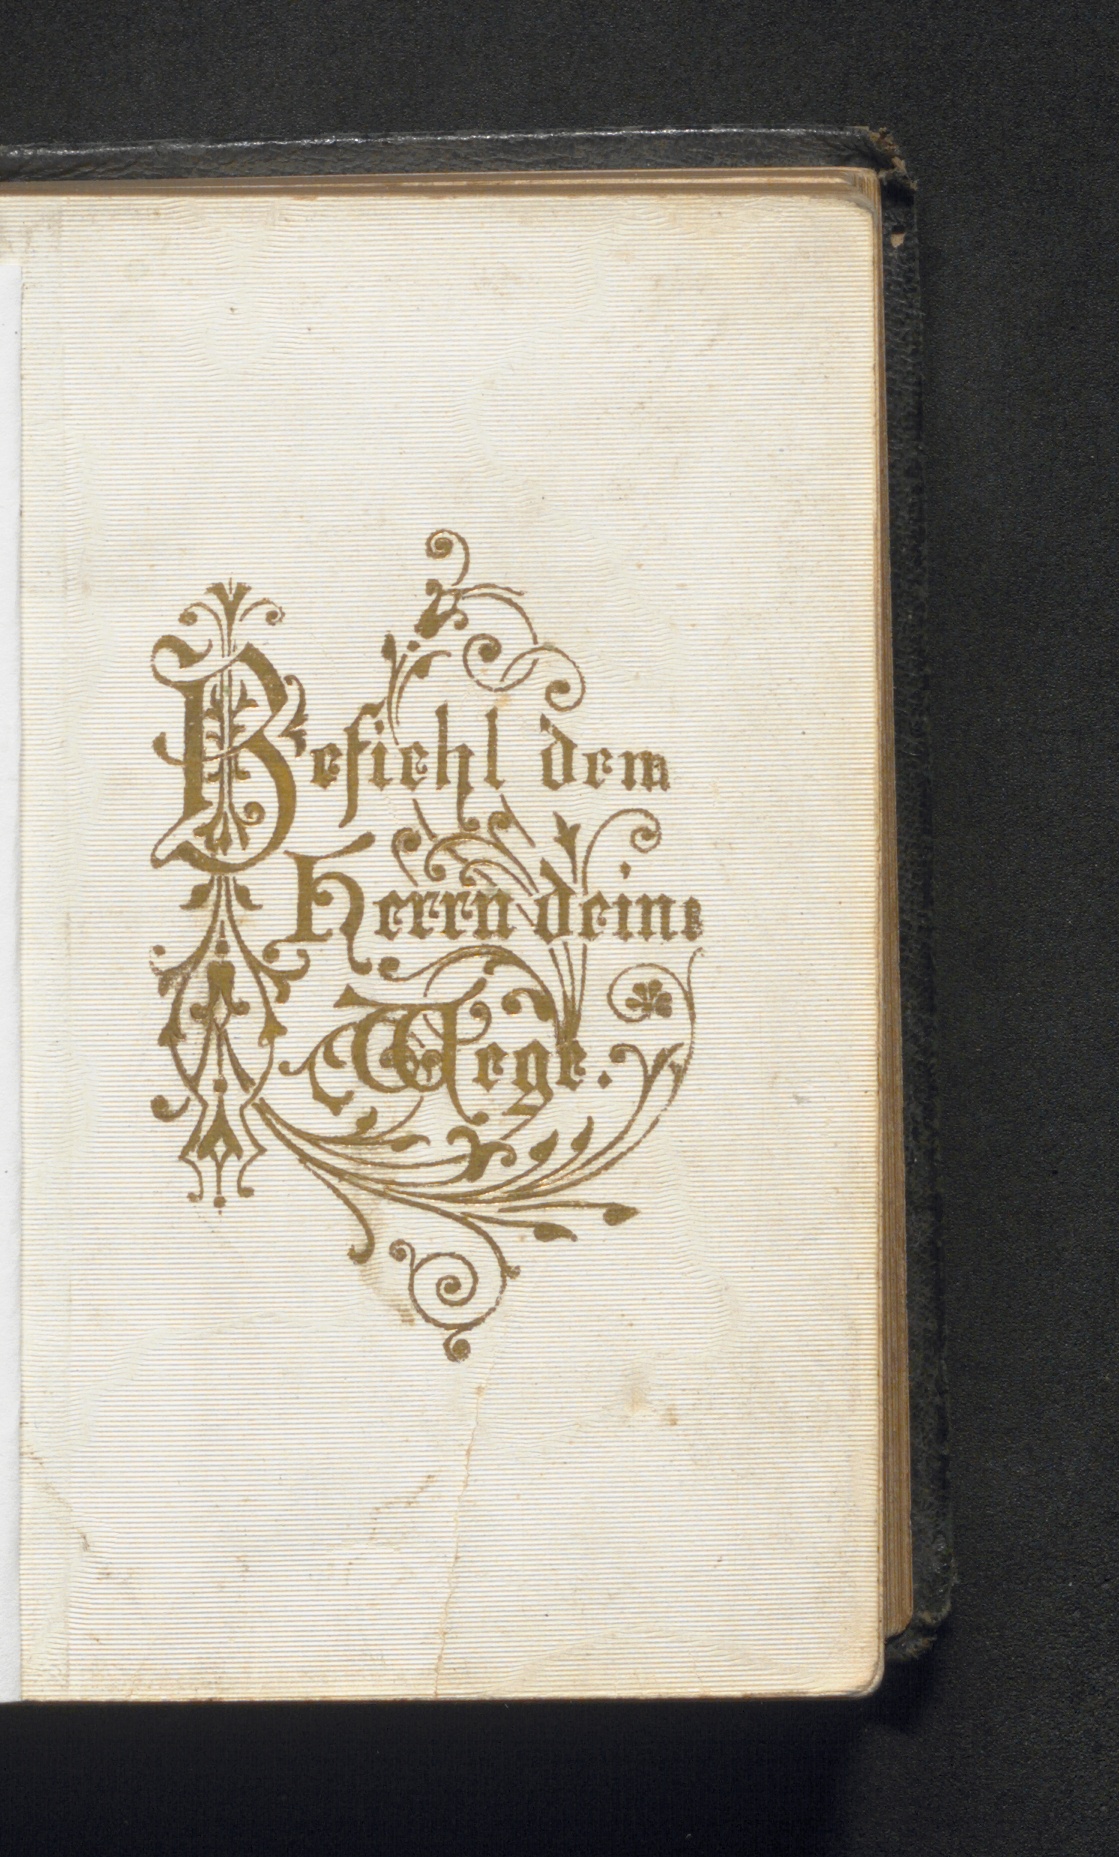 Befiehl dem
Herrn deine
Wege.